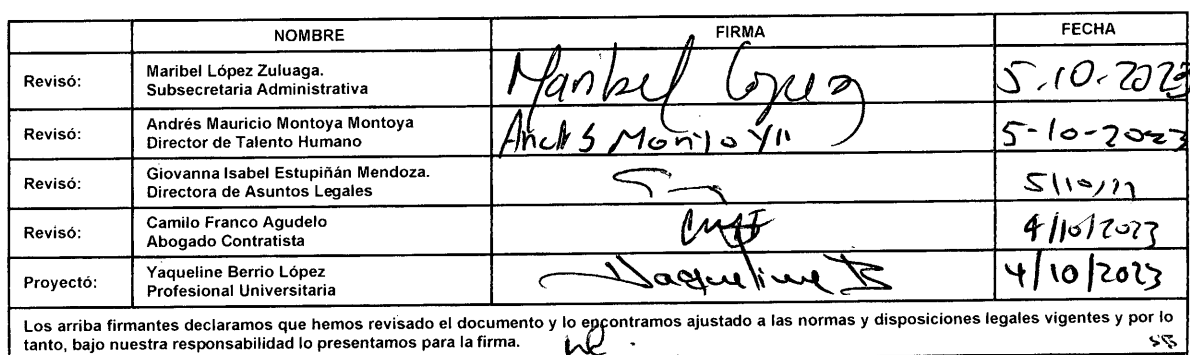 NOMBRE FIRMA FECHA
Revisó: Maribel López Zuluaga.
Subsecretaria Administrativa
Maribel López 5.10.2023
Revisó: Andrés Mauricio Montoya Montoya
Director de Talento Humano
Andrés Montoya 5-10-2023
Revisó: Giovanna Isabel Estupiñán Mendoza.
Directora de Asuntos Legales
Revisó: Camilo Franco Agudelo
Abogado Contratista
4/10/2023
Proyectó: Yaqueline Berrio López
Profesional Universitaria
Yaqueline B 4/10/2023
Los arriba firmantes declaramos que hemos revisado el documento y lo encontramos ajustado a las normas y disposiciones legales vigentes y por lo
tanto, bajo nuestra responsabilidad lo presentamos para la firma.